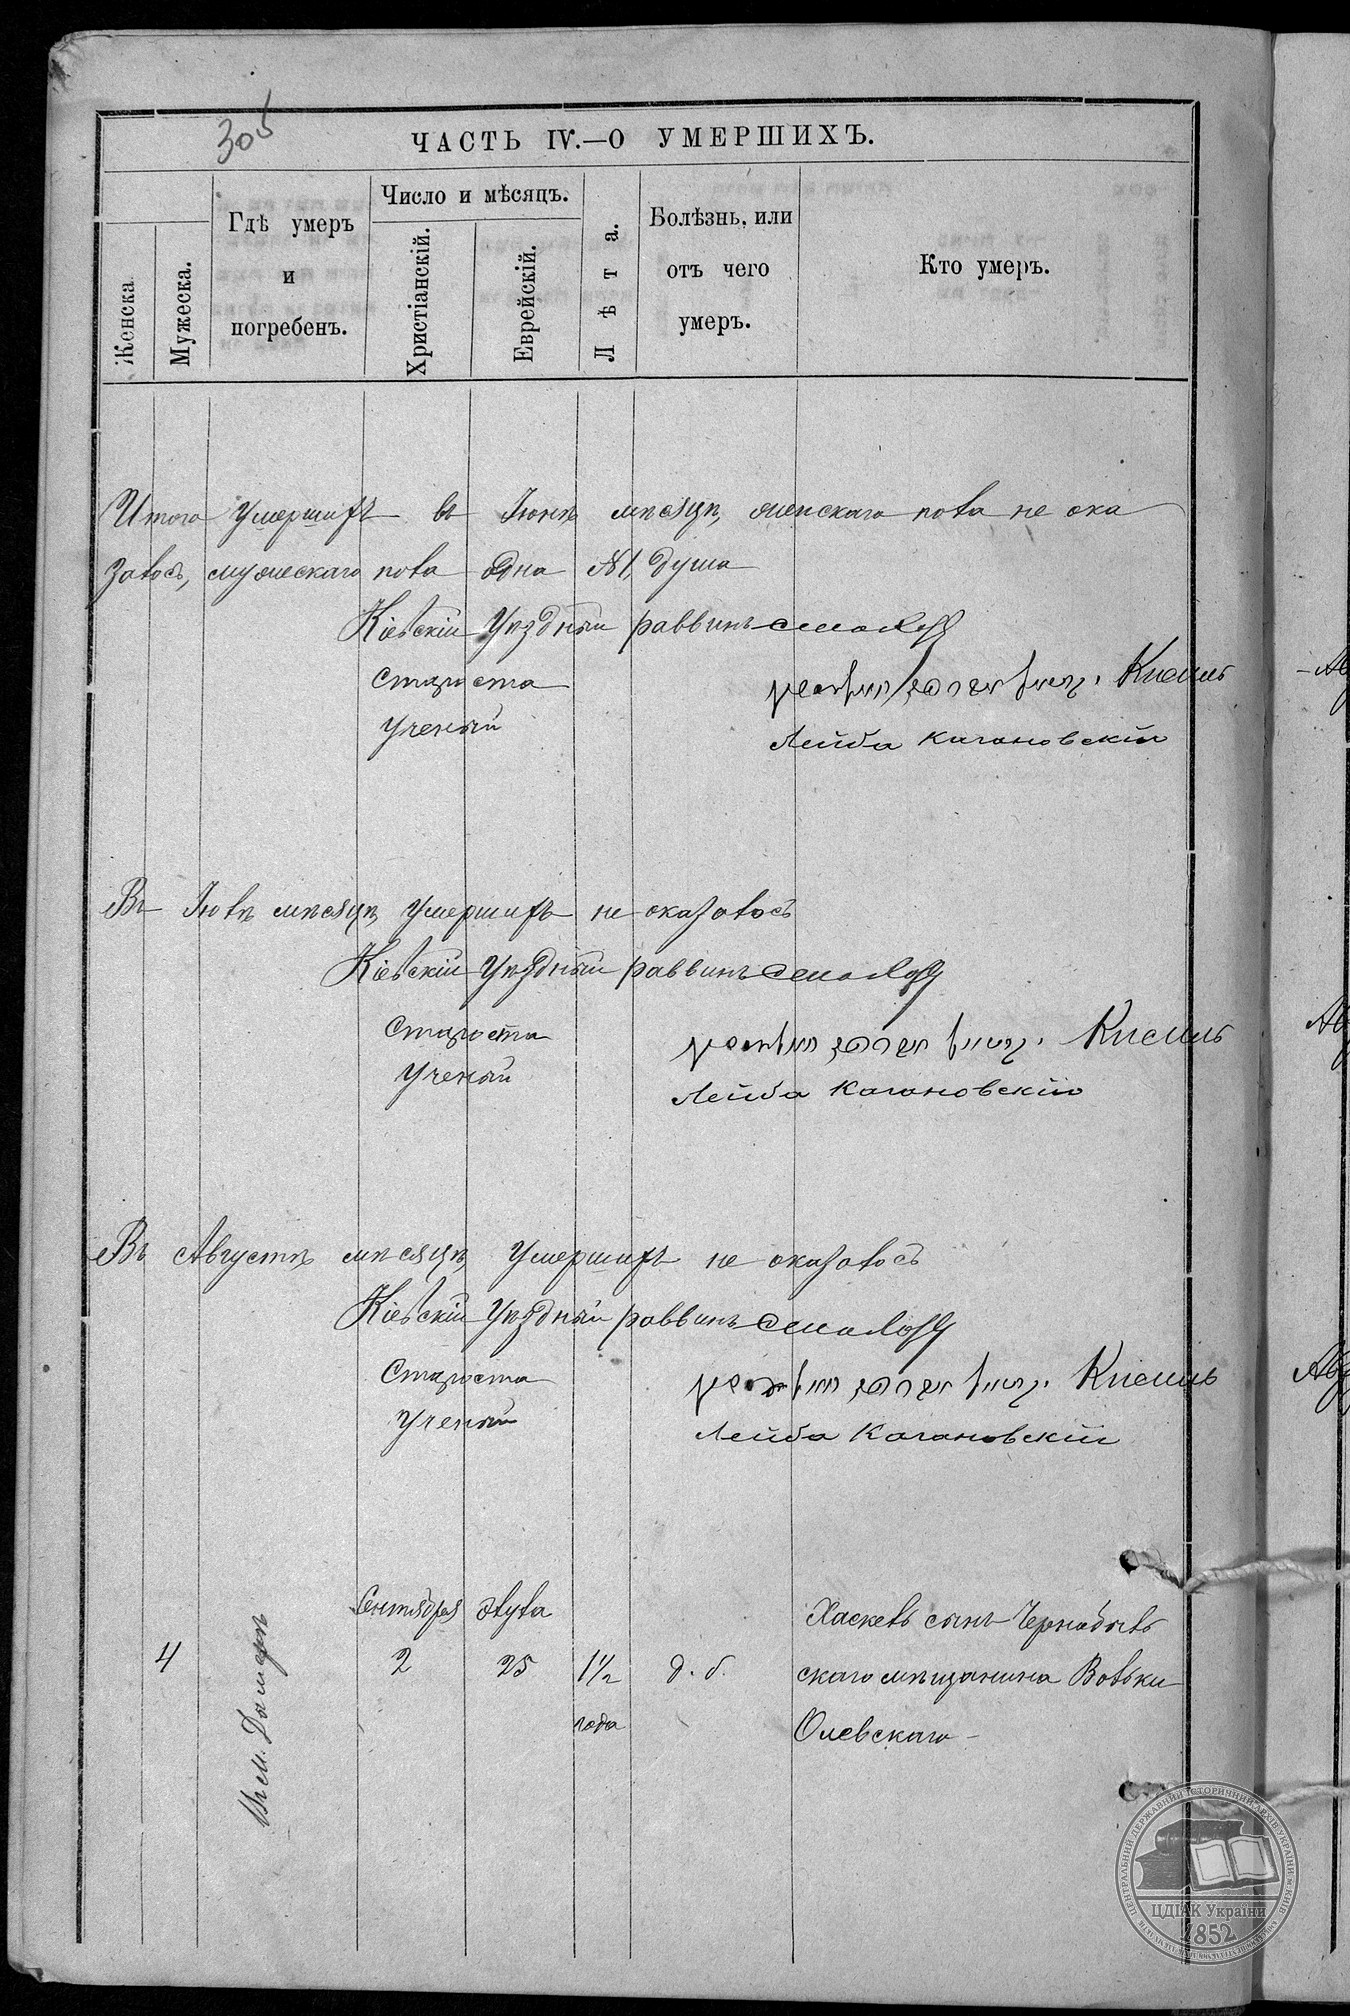 305
ЧАСТЬ IV.—О УМЕРШИХЪ.
Женска
Мужеска.
Гдѣ умеръ
и
погребенъ.
Число и мѣсяцъ.
Христіанскій.
Еврейскій.
Лѣта.
Болѣзнь, или
отъ чего
умеръ.
Кто умеръ.
Итого умершихъ въ Іюнѣ мѣсяцѣ, женскаго пола не ока
залось, мужескаго пола одна №1, душа
Кіевскій Уѣздный раввинъ
Староста
Кисиль
Ученый
Лейба Кагановскій
Въ Іюлѣ мѣсяцѣ умершихъ не оказалось
Кіевскій Уѣздный раввинъ
Староста
Кисиль
Ученый
Лейба Кагановскій
Въ Августѣ мѣсяцѣ, умершихъ не оказалось
Кіевскій Уѣздный раввинъ
Староста
Кисиль
Ученый
Лейба Кагановскій
4
Въ м. Дымерѣ
Сентября
2
Элула
25
1 1/2
года
д. б.
Хаскель сынъ Чернобыль
скаго мѣщанина Вольки
Олевскаго
ЦЕНТРАЛЬНИЙ ДЕРЖАВНИЙ ІСТОРИЧНИЙ АРХІВ УКРАЇНИ м. КИЇВ
ЦДІАК України
1852